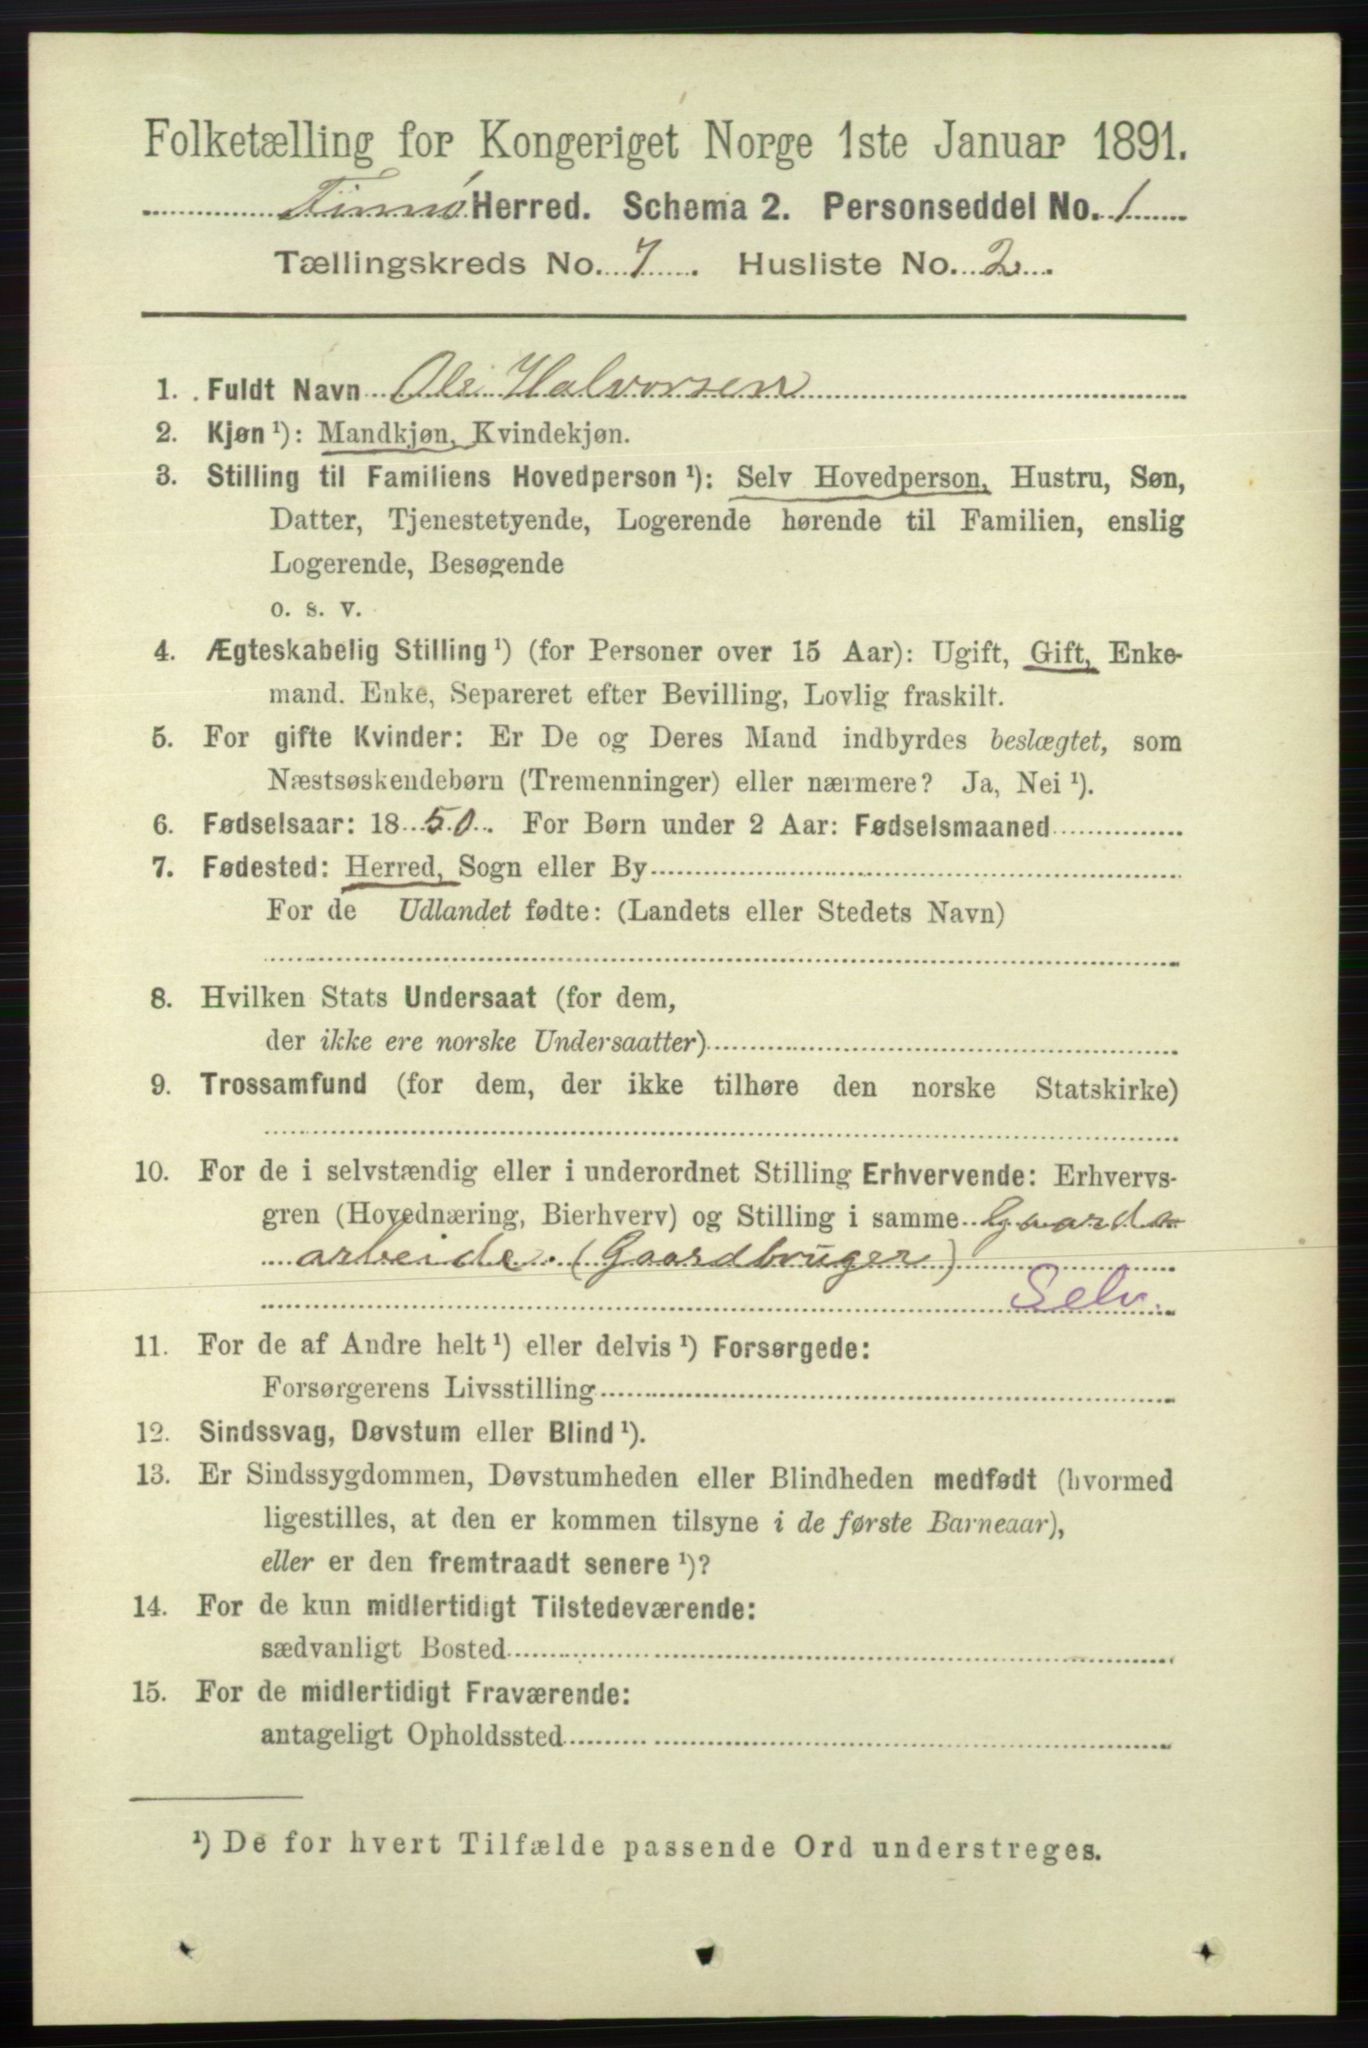 Folketælling for Kongeriget Norge 1ste Januar 1891.
Finnø Herred. Schema 2. Personseddel No. 1
Tællingskreds No. 7. Husliste No. 2.
1. Fuldt Navn Ole Halvorsen
2. Kjøn ¹): Mandkjøn, Kvindekjøn.
3. Stilling til Familiens Hovedperson ¹): Selv Hovedperson, Hustru, Søn,
Datter, Tjenestetyende, Logerende hørende til Familien, enslig
Logerende, Besøgende
o. s. v.
4. Ægteskabelig Stilling ¹) (for Personer over 15 Aar): Ugift, Gift, Enke-
mand. Enke, Separeret efter Bevilling, Lovlig fraskilt.
5. For gifte Kvinder: Er De og Deres Mand indbyrdes beslægtet, som
Næstsøskendebørn (Tremenninger) eller nærmere? Ja, Nei ¹).
6. Fødselsaar: 1850. For Børn under 2 Aar: Fødselsmaaned
7. Fødested: Herred, Sogn eller By
For de Udlandet fødte: (Landets eller Stedets Navn)
8. Hvilken Stats Undersaat (for dem,
der ikke ere norske Undersaatter)
9. Trossamfund (for dem, der ikke tilhøre den norske Statskirke)
10. For de i selvstændig eller i underordnet Stilling Erhvervende: Erhvervs-
gren (Hovednæring, Bierhverv) og Stilling i samme Gaards-
arbeide. (Gaardbruger)
Selv.
11. For de af Andre helt ¹) eller delvis ¹) Forsørgede:
Forsørgerens Livsstilling
12. Sindssvag, Døvstum eller Blind ¹).
13. Er Sindssygdommen, Døvstumheden eller Blindheden medfødt (hvormed
ligestilles, at den er kommen tilsyne i de første Barneaar),
eller er den fremtraadt senere ¹)?
14. For de kun midlertidigt Tilstedeværende:
sædvanligt Bosted
15. For de midlertidigt Fraværende:
antageligt Opholdssted
¹) De for hvert Tilfælde passende Ord understreges.